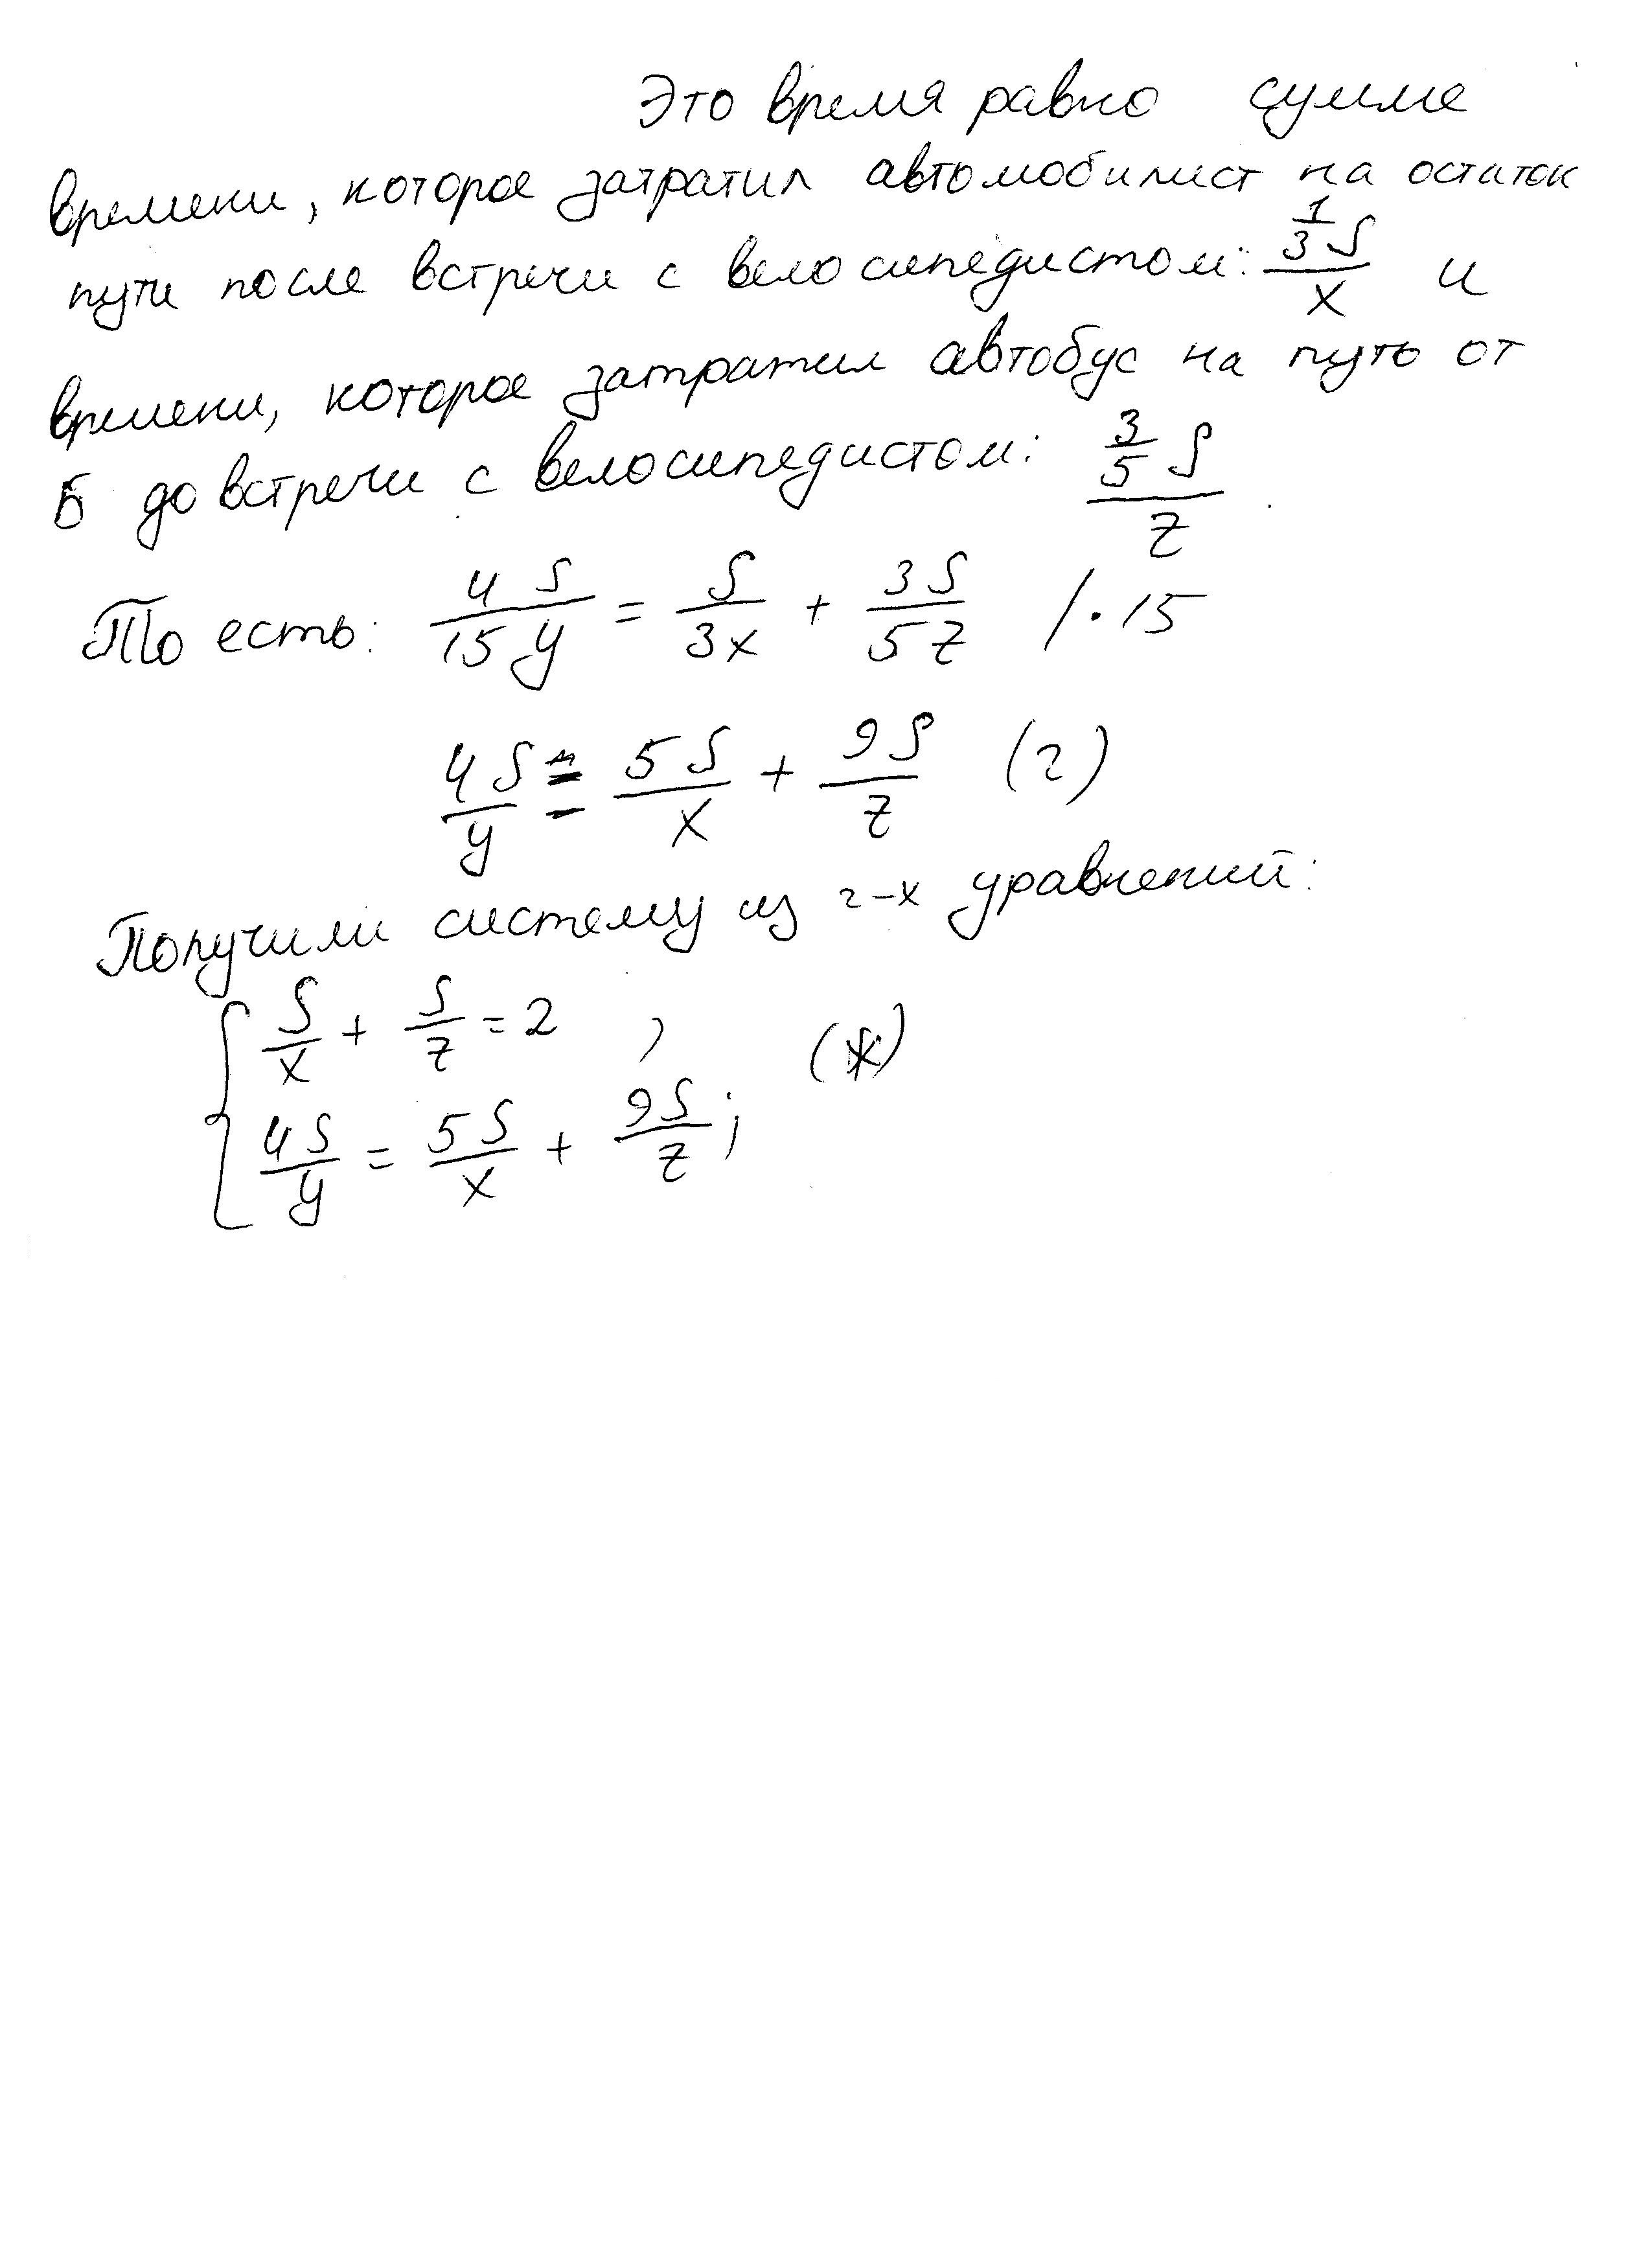 Это время равно сумме
времени, которое затратил автомобилист на остаток
пути после встречи с велосипедистом: \frac{\frac{1}{3}S}{x} и
времени, которое затратил автобус на путь от
Б до встречи с велосипедистом: \frac{\frac{3}{5}S}{z}.
То есть: \frac{4S}{15y} = \frac{S}{3x} + \frac{3S}{5z} / · 15
\frac{4S}{y} = \frac{5S}{x} + \frac{9S}{z} (2)
Получили систему из 2-х уравнений:
\frac{S}{x} + \frac{S}{z} = 2 , (*)
\frac{4S}{y} = \frac{5S}{x} + \frac{9S}{z};